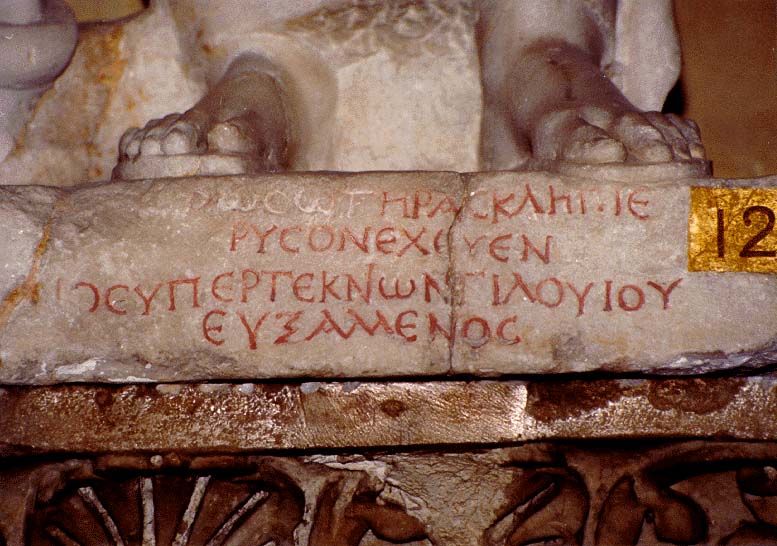 ΡΩΣ ΣΩΤΗΡ ΑΣΚΛΗΠΙΕ
ΡΥΣΟΝ ΕΧΕΥΕΝ
ΙΟΣ ΥΠΕΡ ΤΕΚΝΩΝ ΓΙΛΟΥΙΟΥ
ΕΥΞΑΜΕΝΟΣ
12